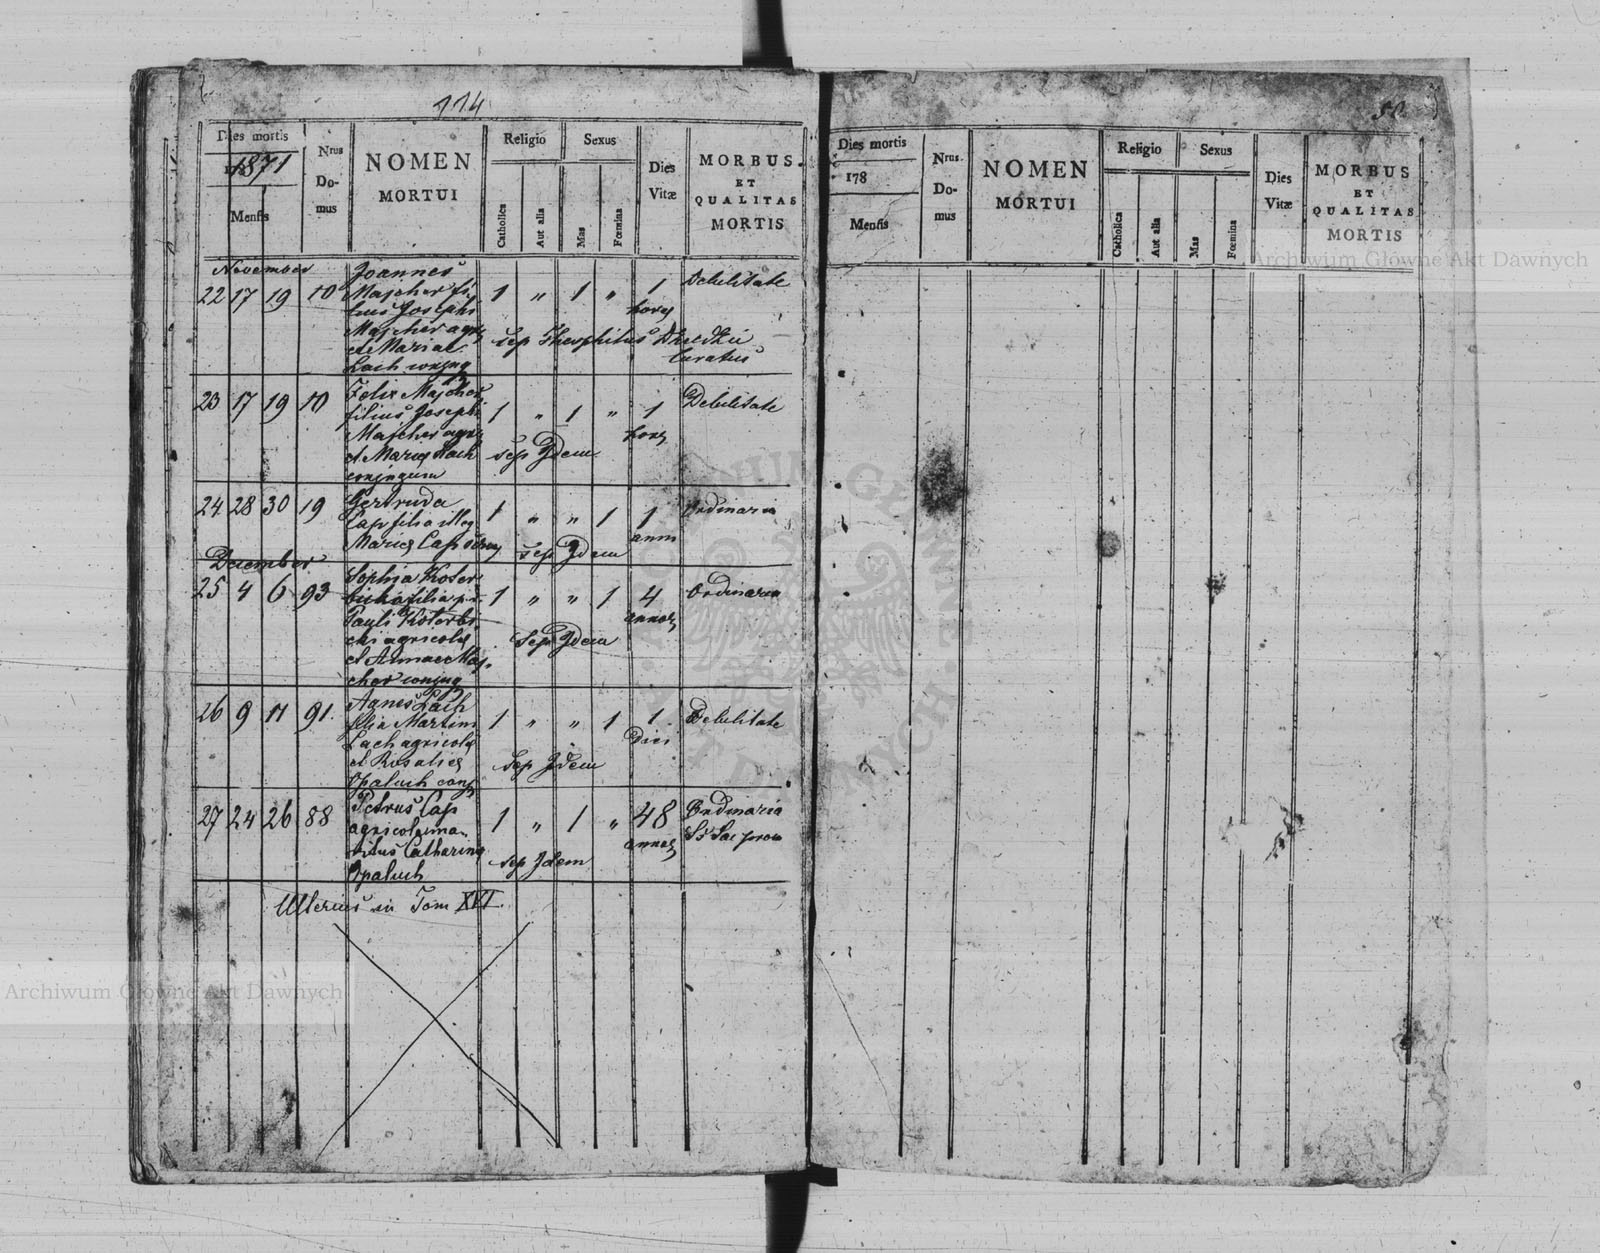 114
Dies mortis
1871
Mensis
Nrus
Do-
mus
NOMEN
MORTUI
Religio
Catholica
Aut alia
Sexus
Mas
Fœmina
Dies
Vitæ
MORBUS
ET
QUALITAS
MORTIS
November
22 17 19 10
Joannes
Majcher fi
lius Josephi
Majcher agr
et Mariae
Lach conjug
1 " 1 " 1
horæ
Debilitate
sep Theophilus
Curatus
23 17 19 10
Felix Majcher
filius Josephi
Majcher agr
et Mariæ Lach
conjugum
1 " 1 " 1
horæ
Debilitate
Sep Idem
24 28 30 19
Gertruda
Cap filia illeg
Mariæ Cap
1 " " 1 1
anni
Ordinaria
Sep Idem
December
25 4 6 93
Sophia Koter
bicka filia
Pauli Koterbi
cki agricolæ
et Annae Maj
cher conjug
1 " " 1 4
annor
Ordinaria
Sep Idem
26 9 11 91.
Agnes Lach
filia Martini
Lach agricolæ
et Rosaliæ
Opaluch conj
1 " " 1 1
Diei
Debilitate
Sep Idem
27 24 26 88
Petrus Cap
agricola ma
ritus Catharinæ
Opaluch
1 " 1 " 48
annor
Ordinaria
Sep Idem
Ulterius in Tom XVI.
50
Dies mortis
178
Mensis
Nrus.
Do-
mus
NOMEN
MORTUI
Religio
Catholica
Aut alia
Sexus
Mas
Fœmina
Dies
Vitæ
MORBUS
ET
QUALITAS
MORTIS
Archiwum Główne Akt Dawnych
Archiwum Główne Akt Dawnych
ARCHIWUM GŁÓWNE AKT DAWNYCH